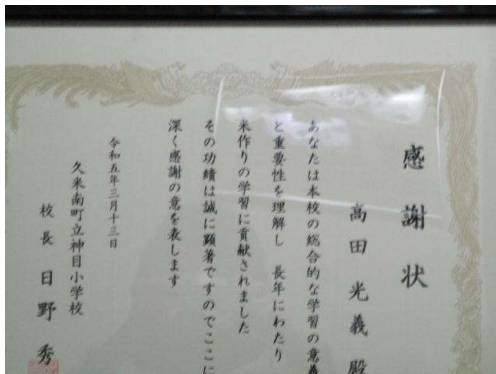 感謝状
高田光義殿
あなたは本校の総合的な学習の意義
と重要性を理解し 長年にわたり
米作りの学習に貢献されました
その功績は誠に顕著ですのでここに
深く感謝の意を表します
令和五年三月十三日
久米南町立神目小学校
校長 日野秀